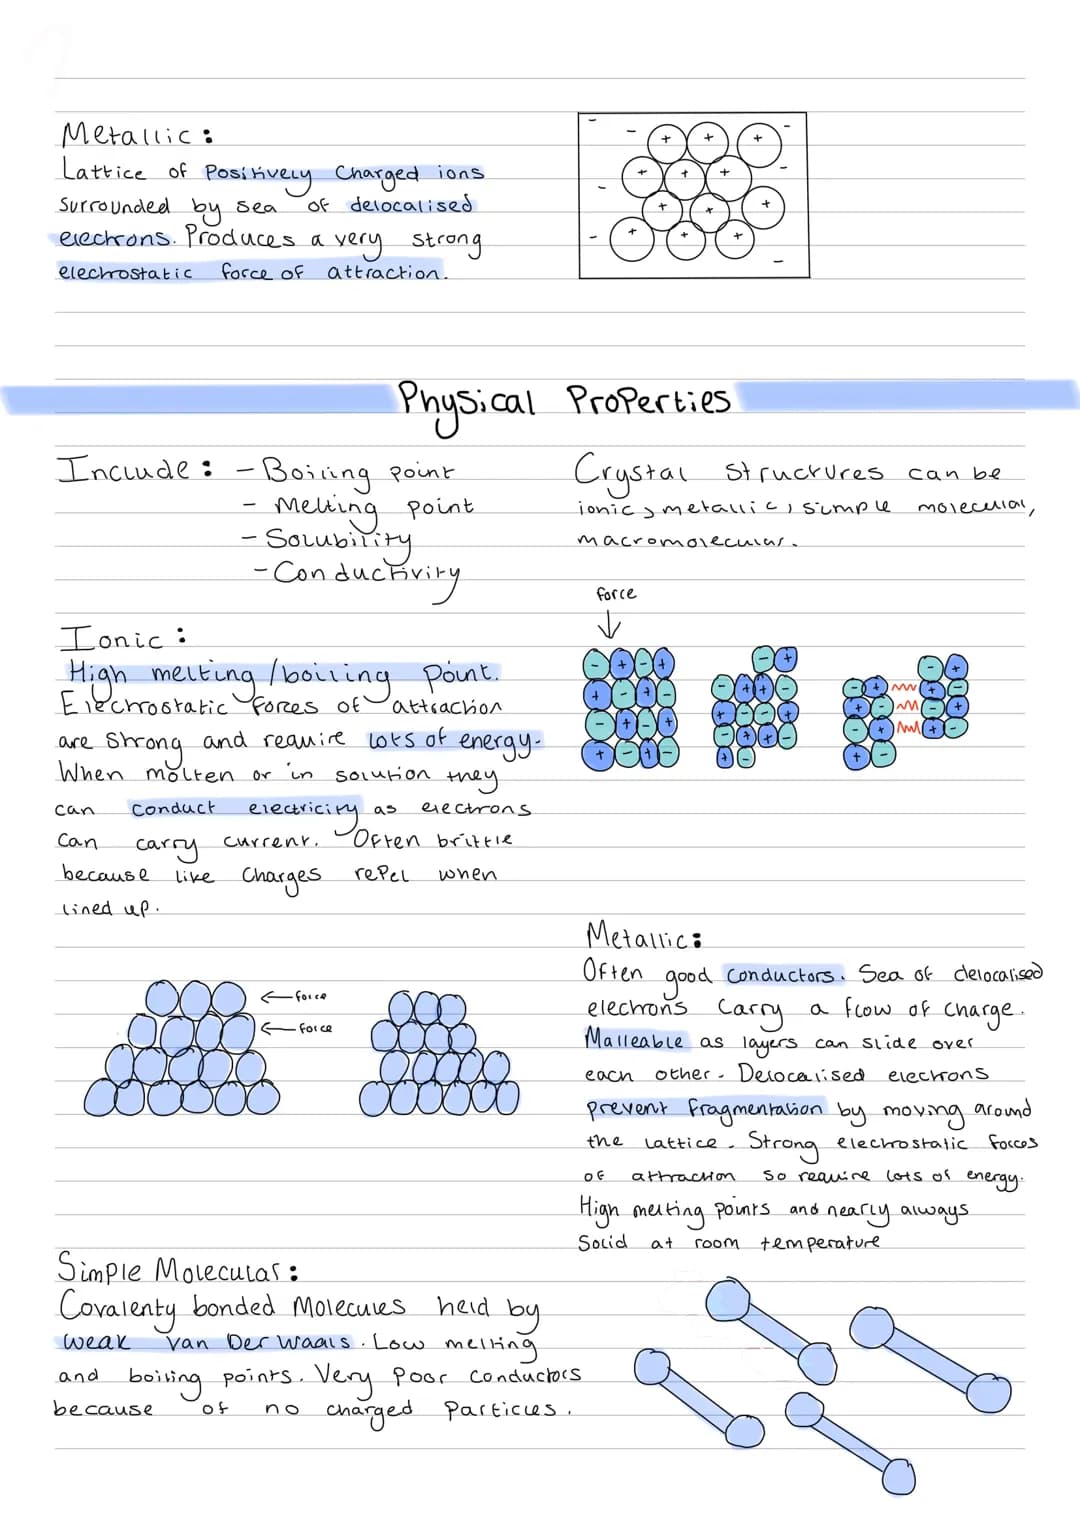 Metallic:
Lattice of Positively Charged ions
Surrounded by sea of delocalised
electrons. Produces a very strong
electrostatic force of attraction.
Physical Properties
Include: - Boiling point
- Melting point
- Solubility
- Conductivity
Crystal Structures can be
ionic, metallic, simple molecular,
macromolecular.
force
Ionic:
High melting/boiling point.
Electrostatic forces of attraction
are strong and require lots of energy.
When molten or in solution they
can conduct electricity as electrons
can carry current. Often brittle
because like charges repel when
lined up.
Metallic:
Often good conductors. Sea of delocalised
electrons carry a flow of charge.
Malleable as layers can slide over
each other. Delocalised electrons
prevent fragmentation by moving around
the lattice. Strong electrostatic forces
of attraction so require lots of energy.
High melting points and nearly always
Solid at room temperature
force
force
Simple Molecular:
Covalenty bonded Molecules held by
weak Van Der Waals. Low melting
and boiling points. Very Poor Conductors
because of no charged Particles.